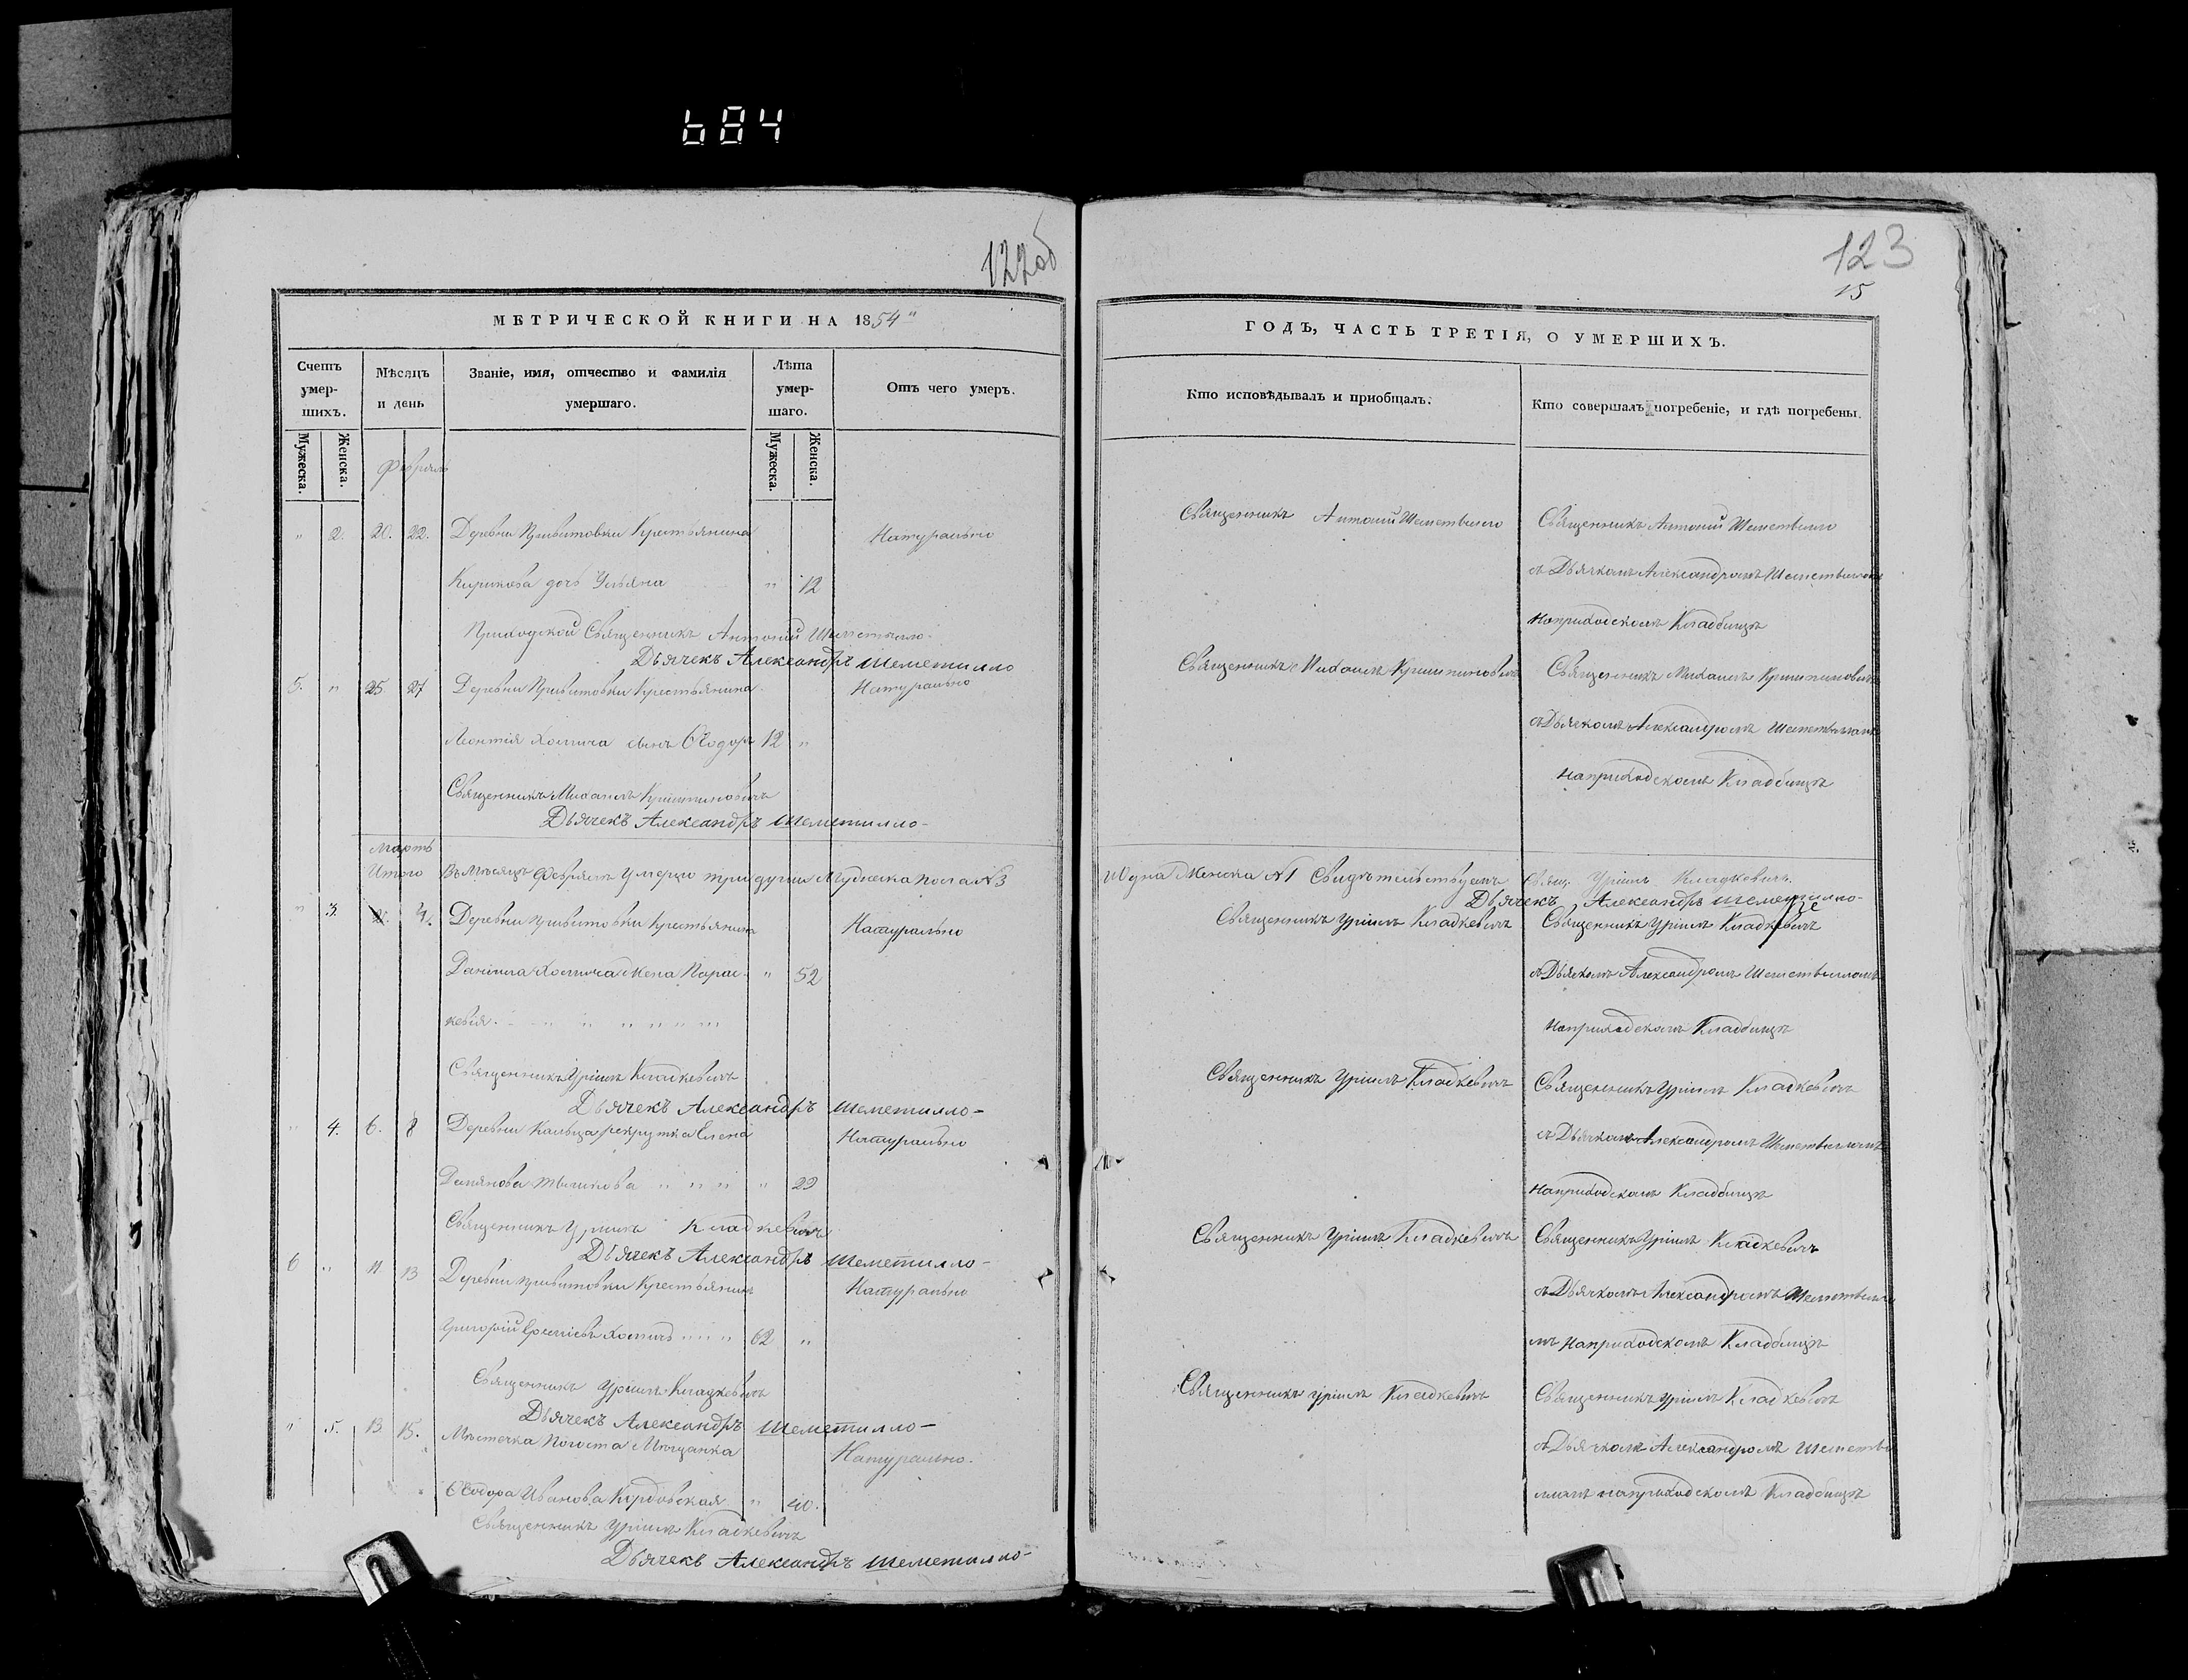 684
122об
МЕТРИЧЕСКОЙ КНИГИ НА 1854"
Счетъ умер-шихъ.
Мѣсяцъ и день
Званіе, имя, отчество и фамилія умершаго.
Лѣта умер-шаго.
Отъ чего умеръ.
Мужеска. Женска.
Февраль
Мужеска. Женска.
" 2. 20. 22. Деревни Крестьянина Натурально
дочь Ульяна " 12
Приходской Священникъ Антоній Шеметилло.
Дьячекъ Александръ Шеметилло
5. " 25 27 Деревни Крестьянина Натурально
Леонтія Хомича сынъ Ѳеодоръ 12 "
Священникъ Михаилъ
Дьячекъ Александръ Шеметилло-
Мартъ
Итого Въ Мѣсяцѣ Февралѣ Умерло три души Мужеска пола №3
" 3. 4. Деревни Крестьянина Натурально
Даніила Хомича Жена Парас- " 52
кевія. - " " " " " "
Священникъ Уріилъ Кладкевичъ
Дьячекъ Александръ Шеметилло-
" 4. 6. 8 Деревни рекрутка Елена Натурально
" " " " 29
Священникъ Уріилъ Кладкевичъ
Дьячекъ Александръ Шеметилло-
6 " 11 13 Деревни Крестьянинъ Натурально
Григорій Хомичъ " " " 62 "
Священникъ Уріилъ Кладкевичъ
Дьячекъ Александръ Шеметилло-
" 5. 13 15. Мѣстечка Погоста Мѣщанка Натурально.
Ѳеодора Иванова " 40.
Священникъ Уріилъ Кладкевичъ
Дьячекъ Александръ Шеметилло-
123
15
ГОДЪ, ЧАСТЬ ТРЕТІЯ, О УМЕРШИХЪ.
Кто исповѣдывалъ и приобщалъ.
Кто совершалъ погребеніе, и гдѣ погребены.
Священникъ Антоній Шеметилло Священникъ Антоній Шеметилло
съ Дьячкомъ Александромъ Шеметилломъ
на приходскомъ Кладбищѣ
Священникъ Михаилъ Священникъ Михаилъ
съ Дьячкомъ Александромъ Шеметилломъ
на приходскомъ Кладбищѣ
И одна Женска №1 Свидѣтельствуемъ Свящ. Уріилъ Кладкевичъ.
Дьячекъ Александръ Шеметилло-
Священникъ Уріилъ Кладкевичъ Священникъ Уріилъ Кладкевичъ
съ Дьячкомъ Александромъ Шеметилломъ
на приходскомъ Кладбищѣ
Священникъ Уріилъ Кладкевичъ Священникъ Уріилъ Кладкевичъ
съ Дьячкомъ Александромъ Шеметилломъ
на приходскомъ Кладбищѣ
Священникъ Уріилъ Кладкевичъ Священникъ Уріилъ Кладкевичъ
съ Дьячкомъ Александромъ Шеметилло
мъ на приходскомъ Кладбищѣ
Священникъ Уріилъ Кладкевичъ Священникъ Уріилъ Кладкевичъ
съ Дьячкомъ Александромъ Шемети
лломъ на приходскомъ Кладбищѣ